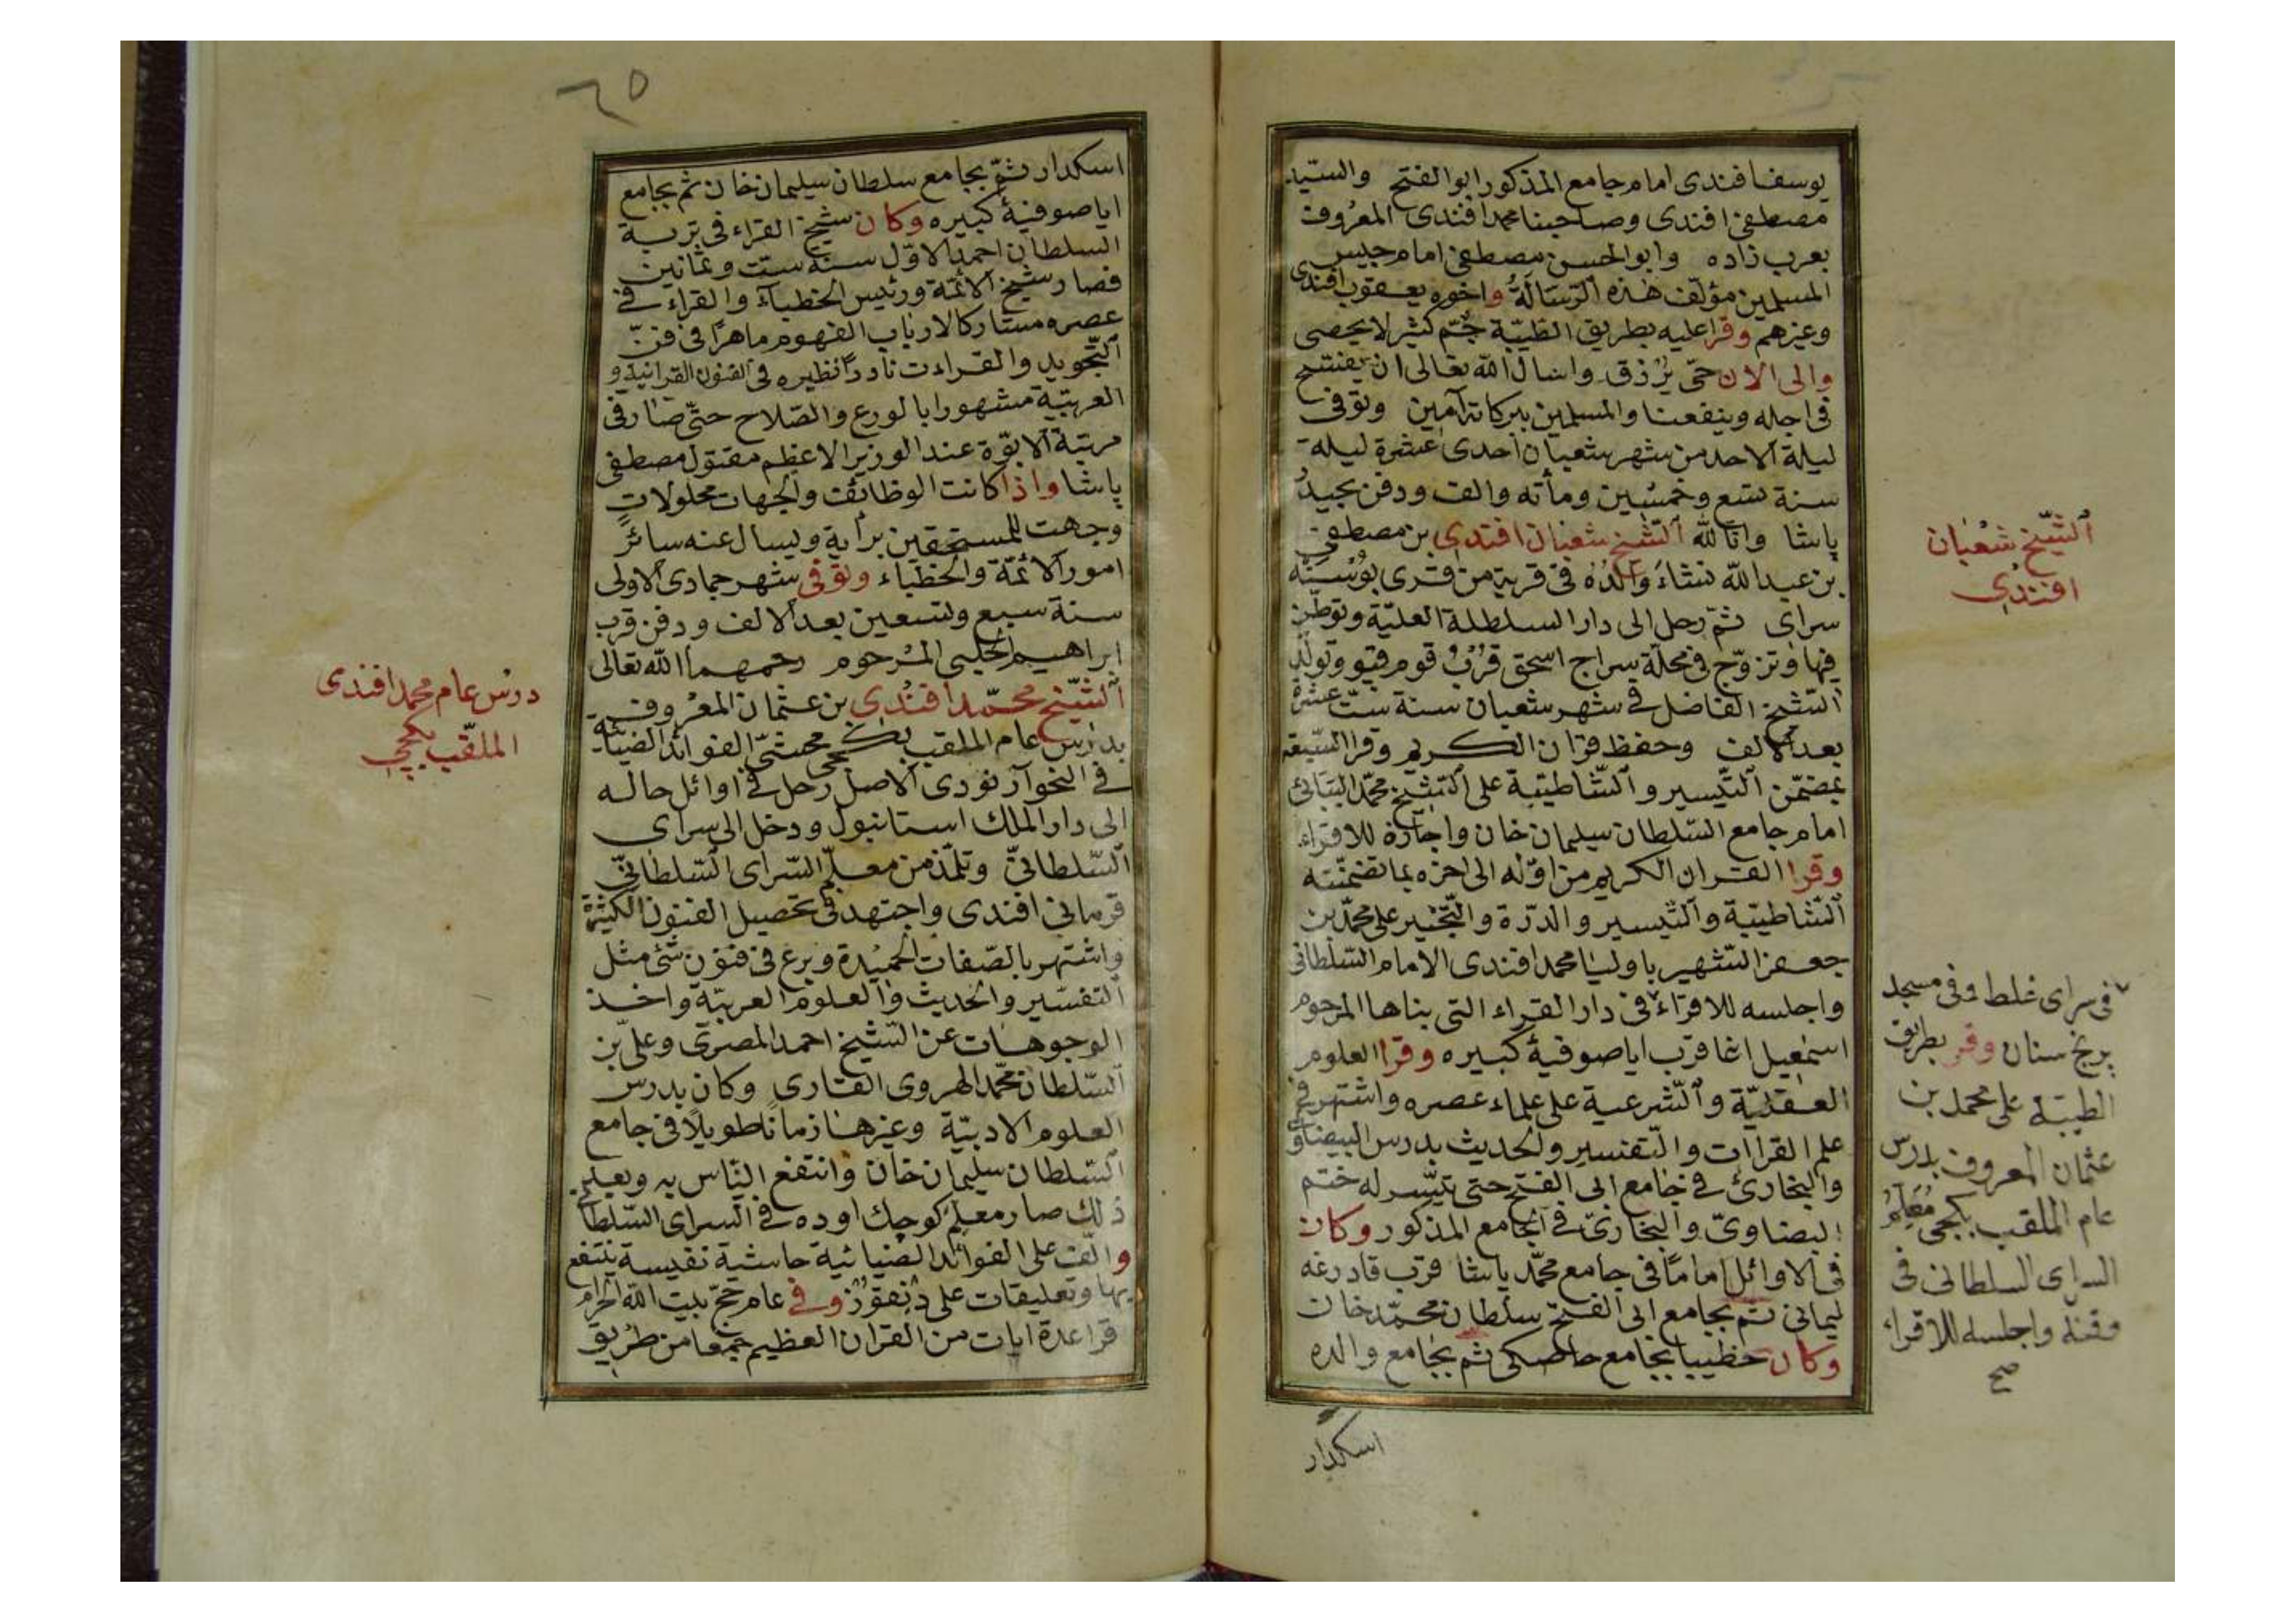 يوسف افندى امام جامع المذكور ابو الفتح والسيد
مصطفى افندى وصاحبنا محمد افندى المعروف
بعرب زاده وابو الحسن مصطفى امام جيس
المسلمين مؤلف هذه الرسالة واخوه يعقوب افندى
وغيرهم وقرا عليه بطريق الطيبة جم كثير لا يحصى
والى الان حى يرزق واسال الله تعالى ان يفتح
فى اجله وينفعنا والمسلمين ببركاته آمين وتوفى
ليلة الاحد من شهر شعبان احدى عشرة ليله
سنة تسع وخمسين ومأته والف ودفن بجيد
پاشا وانا لله الشيخ شعبان افندى بن مصطفى
بن عبد الله نشاء والده فى قرية من قرى بوسنه
سراى ثم رحل الى دار السلطنة العلية وتوطن
فيها وتزوج فى محلة سراج اسحق قرب قوم قپو وتولد
الشيخ الفاضل فى شهر شعبان سنة ست عشرة
بعد الالف وحفظ قران الكريم وقرا السبعة
بمضمن التيسير والشاطبية على الشيخ محمد
امام جامع السلطان سليمان خان واجازه للاقراء
وقرا القران الكريم من اوله الى اخره بما تضمنته
الشاطبية والتيسير والدرة والتحبير على محمد بن
جعفر الشهير باوليا محمد افندى الامام السلطانى
واجلسه للاقراء فى دار القراء التى بناها المرحوم
اسمعيل اغا قرب اياصوفية كبيره وقرا العلوم
العقلية والشرعية على علماء عصره واشتهر فى
علم القراات والتفسير والحديث بدرس البيضاوى
والبخارى فى جامع ابى الفتح حتى تيسر له ختم
البضاوى والبخارى فى الجامع المذكور وكان
فى الاوائل اماما فى جامع محمد پاشا قرب قادرغه
ليمانى ثم بجامع ابى الفتح سلطان محمد خان
وكان خطيبا بجامع خاصكى ثم بجامع والده
اسكدار
الشيخ شعبان
افندى
فى سراى غلطه وفى مسجد
برنج سنان وقر بطريق
الطيبة على محمد بن
عثمان المعروف بدرس
عام الملقب بكچى معلم
السراى السلطانى فى
وقته واجلسه للاقراء
صح
٦٥
اسكدار ثم بجامع سلطان سليمان خان ثم بجامع
اياصوفية كبيره وكان شيخ القراء فى تربة
السلطان احمد الاول سنة ست وثمانين
فصار شيخ الائمة ورئيس الخطباء والقراء فى
عصره مشاركا لارباب الفهوم ماهرا فى فن
التجويد والقراءت نادرا نظيره فى الفنون القرانية و
العربية مشهورا بالورع والصلاح حتى صار فى
مرتبة الابوة عند الوزير الاعظم مقتول مصطفى
پاشا واذا كانت الوظائف والجهات محلولات
وجهت للمستحقين برأيه ويسال عنه سائر
امور الائمة والخطباء وتوفى شهر جمادى الاولى
سنة سبع وتسعين بعد الالف ودفن قرب
ابراهيم الحلبى المرحوم رحمهما الله تعالى
الشيخ محمد افندى بن عثمان المعروف
بدرس عام الملقب بكچى محشى الفوائد الضيائيه
فى النحو آرنودى الاصل رحل فى اوائل حاله
الى دار الملك استانبول ودخل الى سراى
السلطانى وتلمذ من معلم السراى السلطانى
قرمانى افندى واجتهد فى تحصيل الفنون الكثيرة
واشتهر بالصفات الحميدة وبرع فى فنون شتى مثل
التفسير والحديث والعلوم العربية واخذ
الوجوهات عن الشيخ احمد المصرى وعلى بن
السلطان محمد الهروى القارى وكان يدرس
العلوم الادبية وغيرها زمانا طويلا فى جامع
السلطان سليمان خان وانتفع الناس به وبعد
ذلك صار معلم كوچك اوده فى السراى السلطانى
والف على الفوائد الضيائية حاشية نفيسة ينتفع
بها وتعليقات على دنقوز وفى عام حج بيت الله الحرام
قرا عدة ايات من القران العظيم جمعا من طريق
درس عام محمد افندى
الملقب بكچى